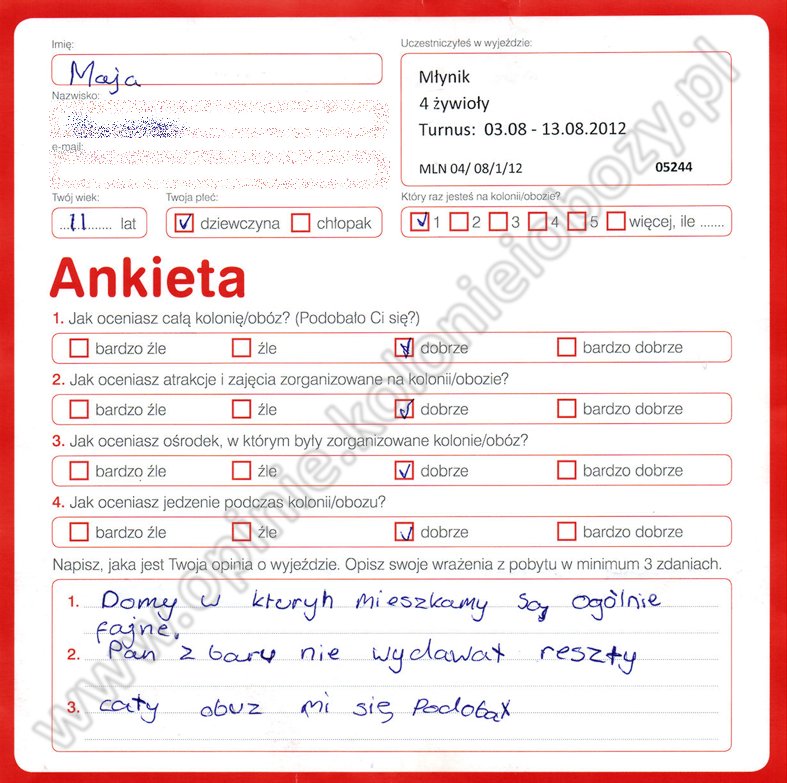 Imię:
Maja
Uczestniczyłeś w wyjeździe:
Młynik
4 żywioły
Turnus: 03.08 - 13.08.2012
MLN 04/ 08/1/12 05244
Nazwisko:
e-mail:
Twój wiek:
11 lat
Twoja płeć:
dziewczyna chłopak
Który raz jesteś na kolonii/obozie?
1 2 3 4 5 więcej, ile .......
Ankieta
1. Jak oceniasz całą kolonię/obóz? (Podobało Ci się?)
bardzo źle źle dobrze bardzo dobrze
2. Jak oceniasz atrakcje i zajęcia zorganizowane na kolonii/obozie?
bardzo źle źle dobrze bardzo dobrze
3. Jak oceniasz ośrodek, w którym były zorganizowane kolonie/obóz?
bardzo źle źle dobrze bardzo dobrze
4. Jak oceniasz jedzenie podczas kolonii/obozu?
bardzo źle źle dobrze bardzo dobrze
Napisz, jaka jest Twoja opinia o wyjeździe. Opisz swoje wrażenia z pobytu w minimum 3 zdaniach.
1. Domy w kturyh mieszkamy są ogólnie
fajne.
2. Pan z baru nie wydawał reszty
3. cały obuz mi się Podobał
www.opinie.kolonieiobozy.pl